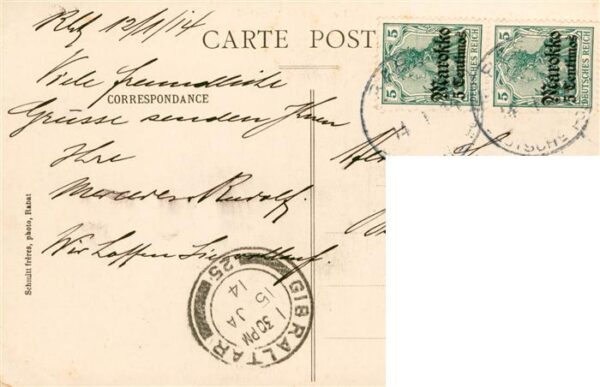 12/1/14
CARTE POST
CORRESPONDANCE
Viele freundliche
Grüsse senden Ihnen
Ihre
Rudolf.
Wir hoffen
Schmitt frères, photo, Rabat
5
Marokko
5 Centimos
DEUTSCHES REICH
5
Marokko
5 Centimos
DEUTSCHES REICH
GIBRALTAR
25
1 30 PM
15 JA
14